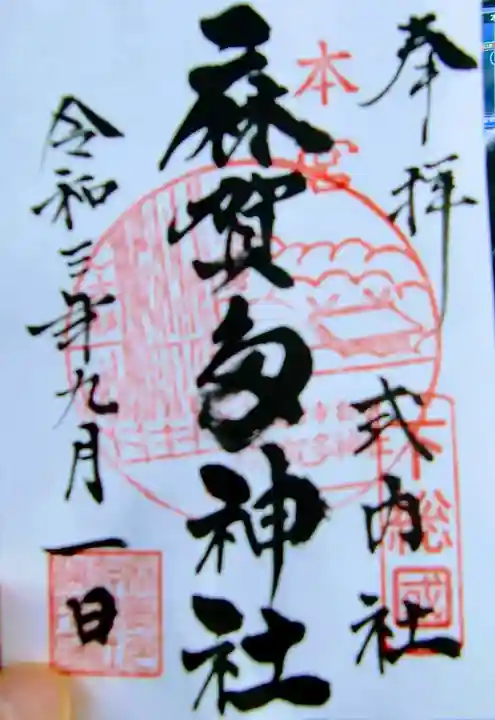 奉拝
式内社
本宮
下総国
麻賀多神社
令和三年九月
一日